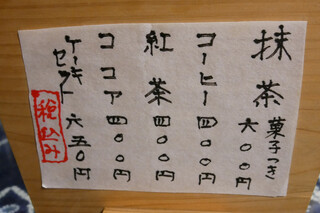 抹茶 菓子つき 六〇〇円
コーヒー 四〇〇円
紅茶 四〇〇円
ココア 四〇〇円
ケーキセット 六五〇円
税込み